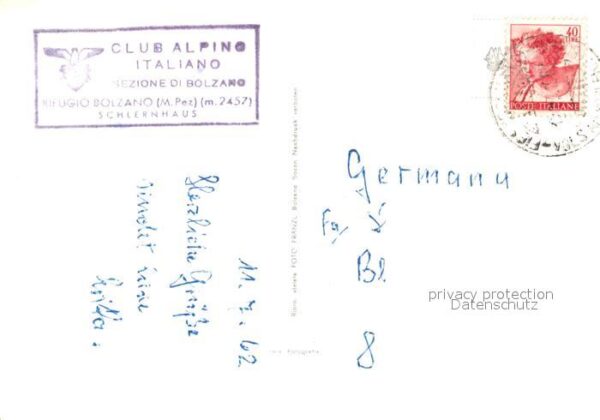 CLUB ALPINO
ITALIANO
SEZIONE DI BOLZANO
RIFUGIO BOLZANO (M. Pez) (m. 2457)
SCHLERNHAUS
40
LIRE
POSTE ITALIANE
Germany
Fa
K
Bl
8
privacy protection
Datenschutz
11. 7. 62
Herzliche Grüße
sendet
FOTO FRÄNZL Bolzano Bozen Nachdruck verboten